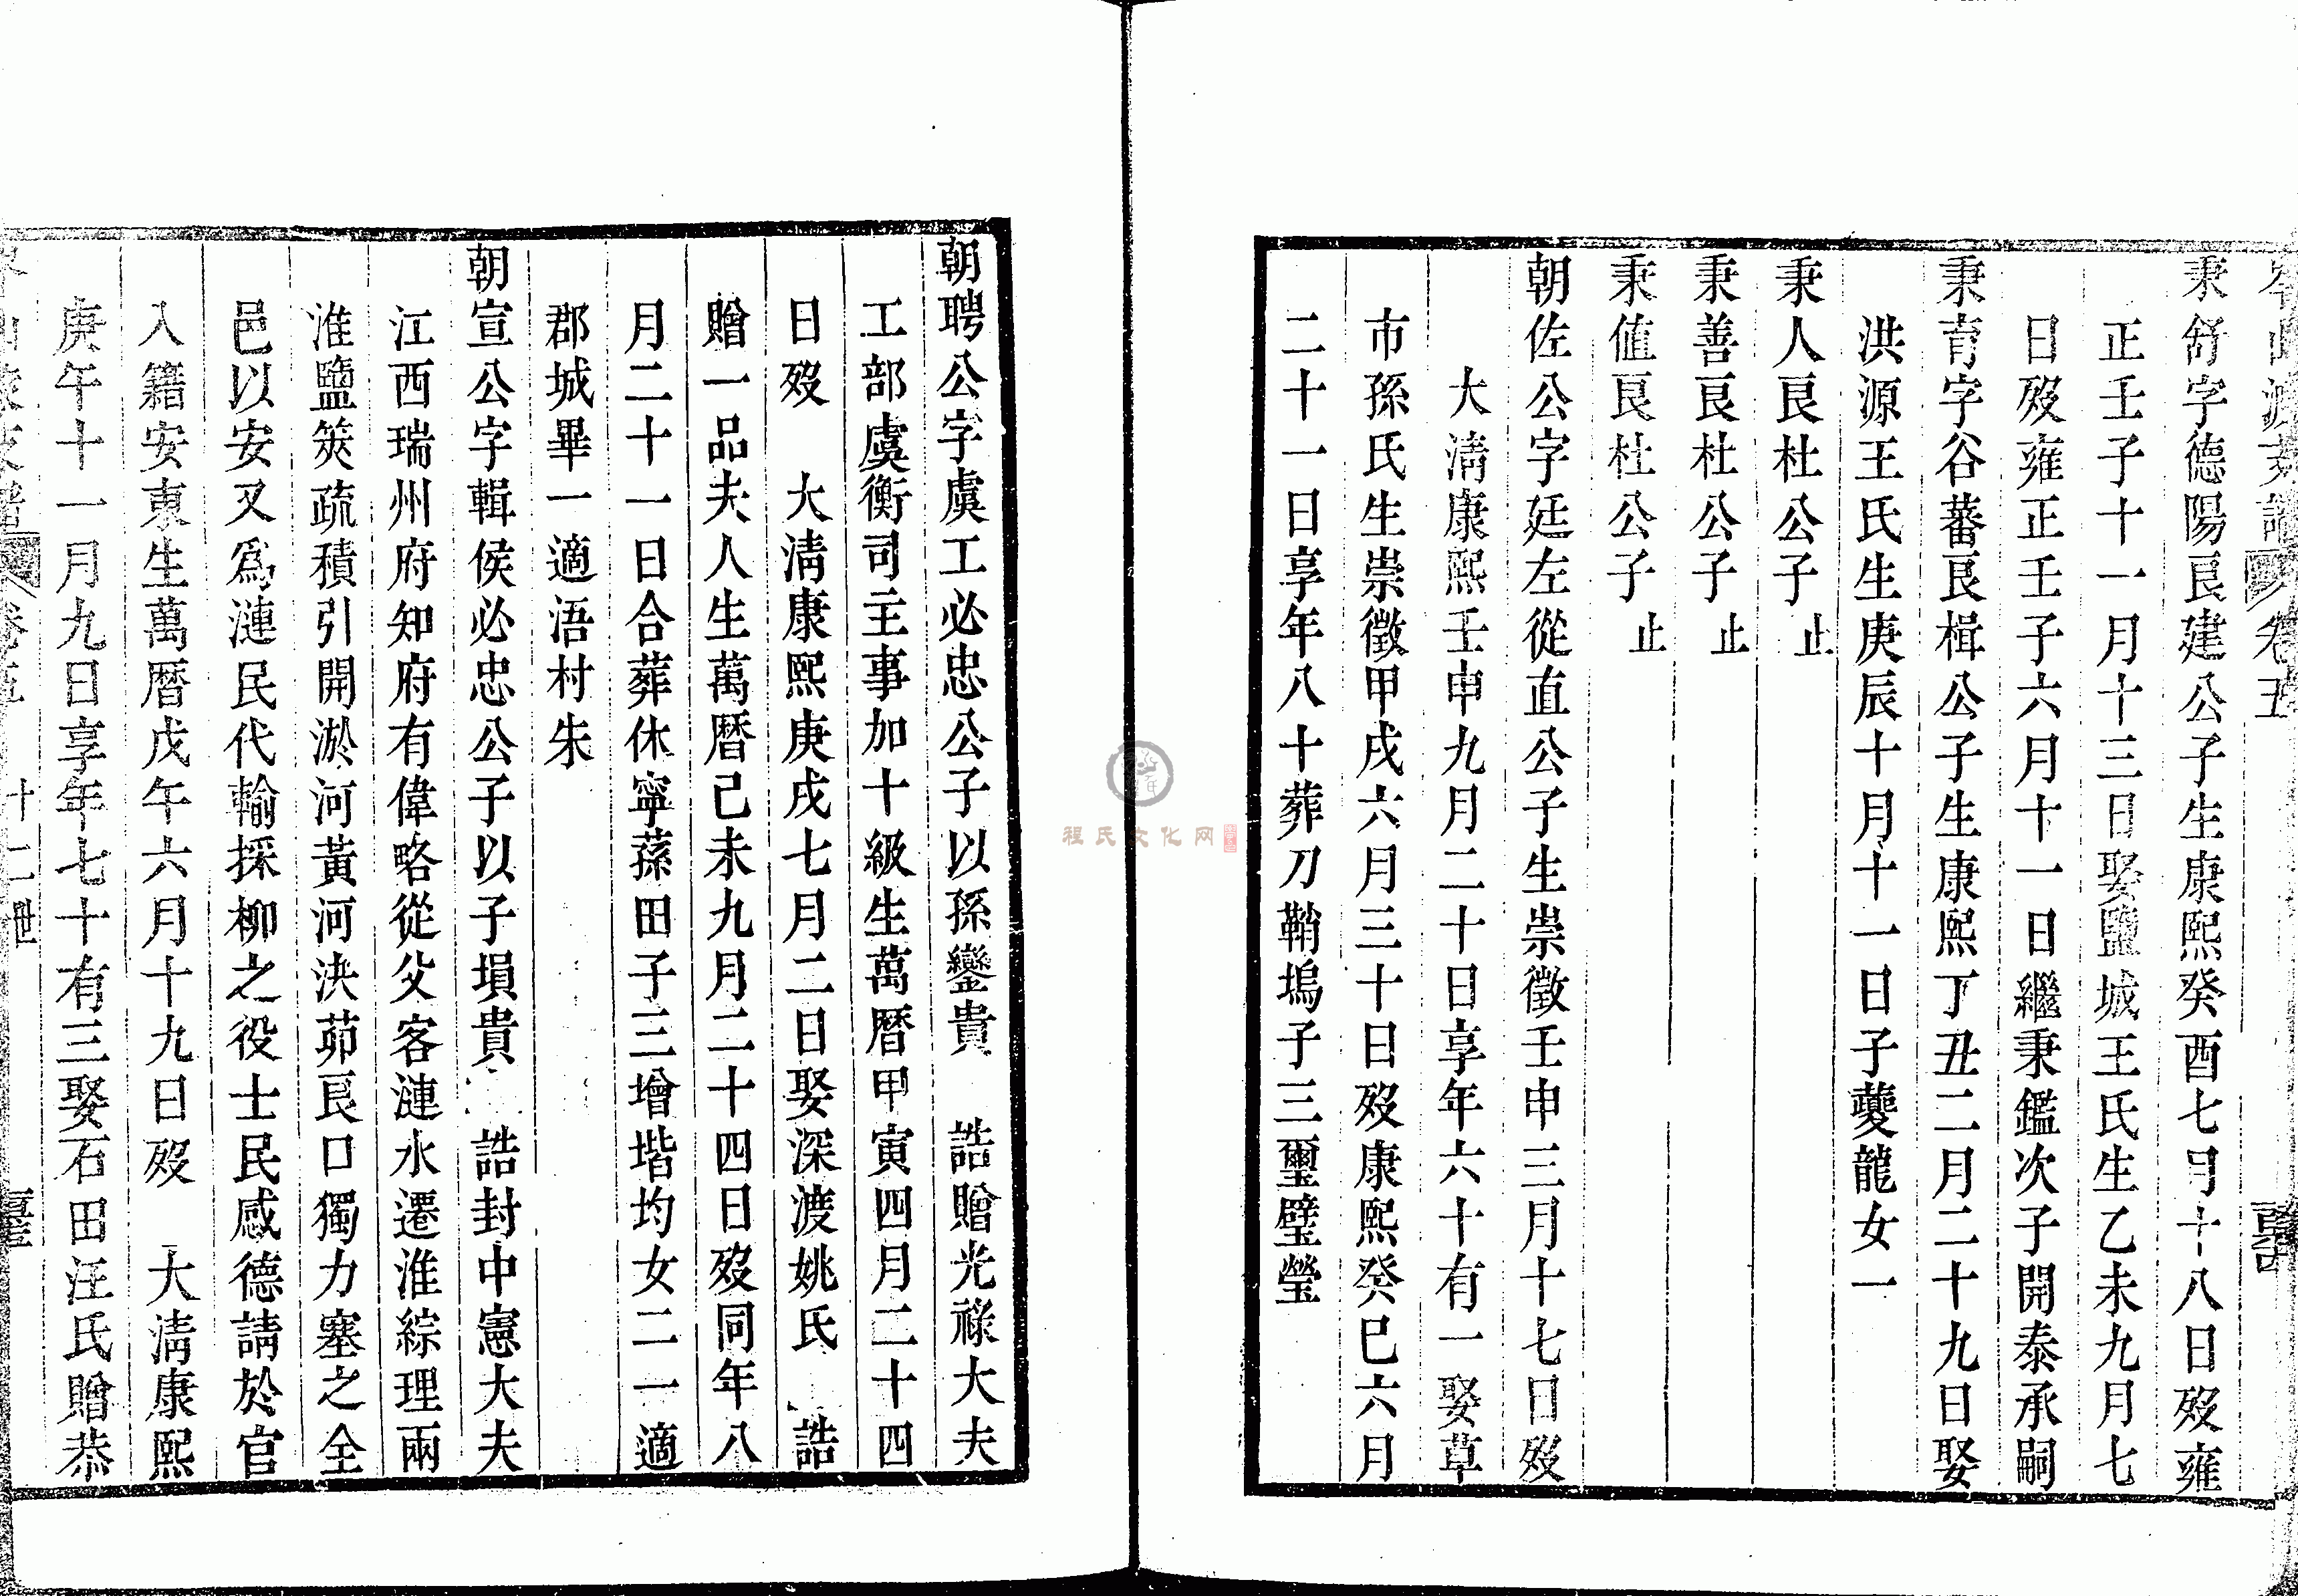 秉舒字德陽艮建公子生康熙癸酉七月十八日歿雍
正壬子十一月十三日娶鹽城王氏生乙未九月七
日歿雍正壬子六月十一日繼秉鑑次子開泰承嗣
秉育字谷蕃艮楫公子生康熙丁丑二月二十九日娶
洪源王氏生庚辰十月十一日子夔龍女一
秉人艮杜公子止
秉善艮杜公子止
秉值艮杜公子止
朝佐公字廷左從直公子生崇徵壬申三月十七日歿
大清康熙壬申九月二十日享年六十有一娶草
市孫氏生崇徵甲戌六月三十日歿康熙癸巳六月
二十一日享年八十葬刀鞘塢子三璽璧瑩
朝聘公字虞工必忠公子以孫鑾貴 誥贈光祿大夫
工部虞衡司主事加十級生萬曆甲寅四月二十四
日歿 大清康熙庚戌七月二日娶深渡姚氏 誥
贈一品夫人生萬曆己未九月二十四日歿同年八
月二十一日合葬休寧蓀田子三增堦均女二一適
郡城畢一適浯村朱
朝宣公字輯侯必忠公子以子塤貴 誥封中憲大夫
江西瑞州府知府有偉略從父客漣水遷淮綜理兩
淮鹽筴疏積引開淤河黃河決茆艮口獨力塞之全
邑以安又為漣民代輸採柳之役士民感德請於官
入籍安東生萬曆戊午六月十九日歿 大清康熙
庚午十一月九日享年七十有三娶石田汪氏贈恭
卷五 十二世
程氏文化网